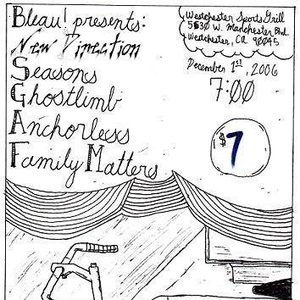 Bleau! presents:
New Direction
Seasons
Ghostlimb
Anchorless
Family Matters
Westchester Sports Grill
5630 W. Manchester Blvd.
Westchester, CA 90045
December 1st, 2006
7:00
$7